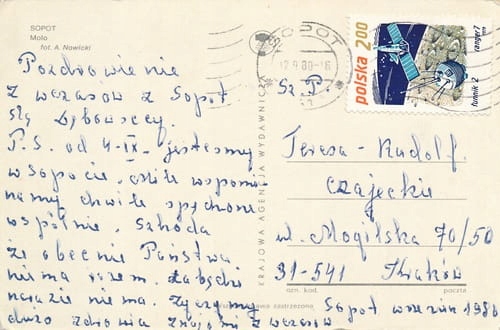 SOPOT
Molo
fot. A. Nowicki
Pozdrowienie
z wczasów z Sopot
ślą Dębowscy.
P.S. od 4-IX- jesteśmy
w Sopocie, mile wspomi-
namy chwile spędzone
wspólnie. Szkoda
że obecnie Państwa
niema razem. Łabędzi
narazie nie ma. Życzymy
dużo zdrowia znajomi z wczasów
KRAJOWA AGENCJA WYDAWNICZA
SOPOT
12.9.80-16
polska 2.00
ranger 7
łunnik 2
Sz. P.
Teresa - Rudolf.
Czajeckie
ul. Mogilska 70/50
31-541 Kraków
ozn. kod. poczta
zastrzeżone
Sopot wrzesień 1980